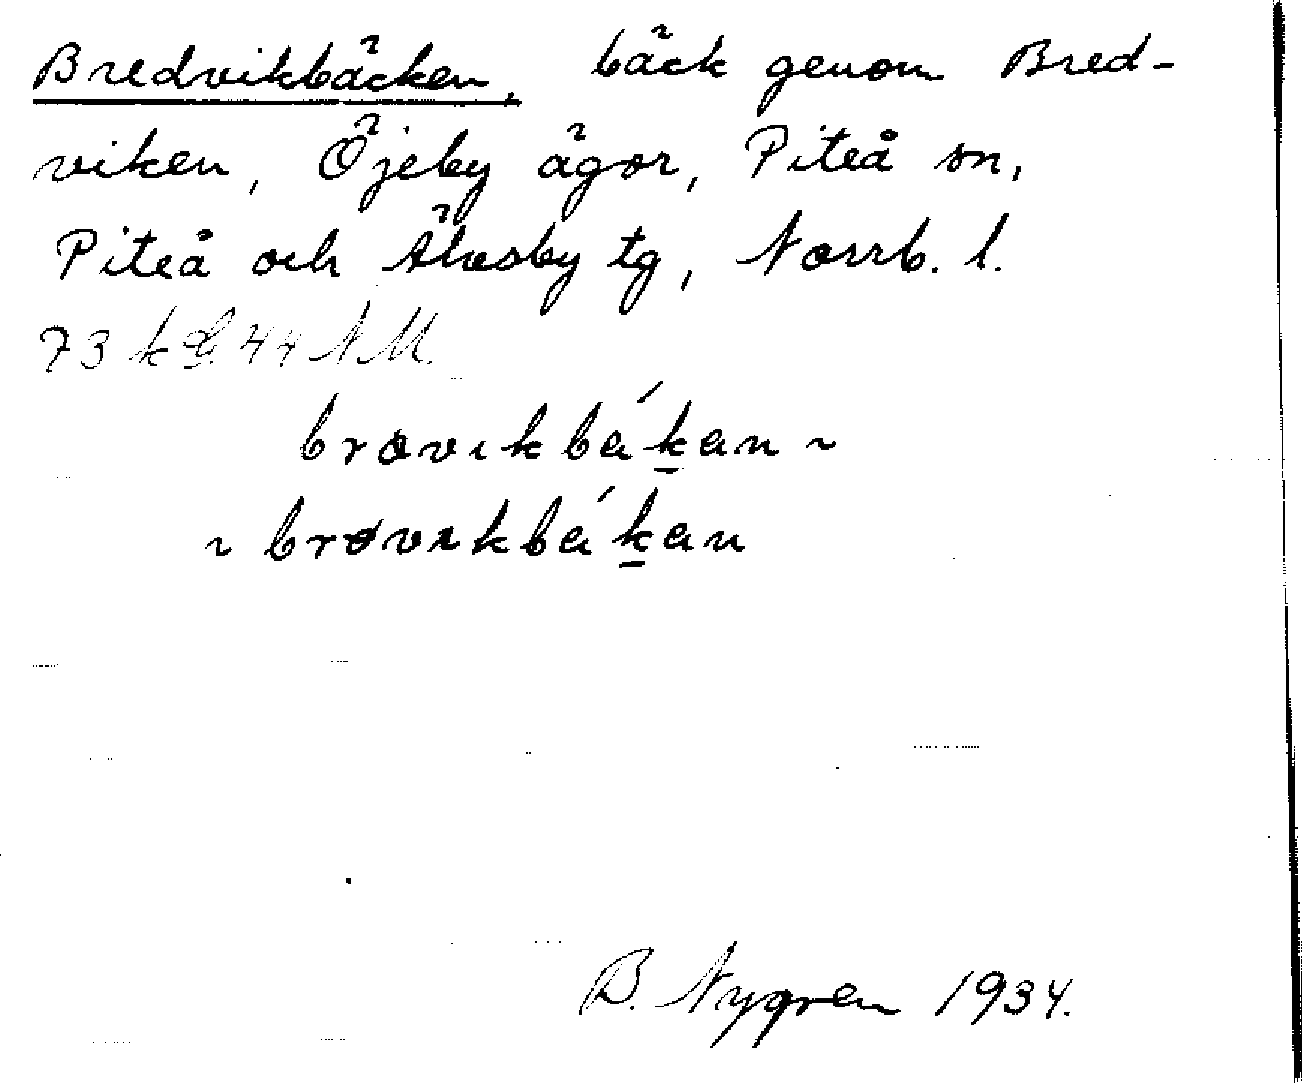 Bredvikbäcken, bäck genom Bred-
viken, Öjeby ägor, Piteå sn,
Piteå och Älvsby tg, Norrb. l.
73 k G 44 N M.
brøvikbákan ~
~ brøvıkbákan
B. Nygren 1934.